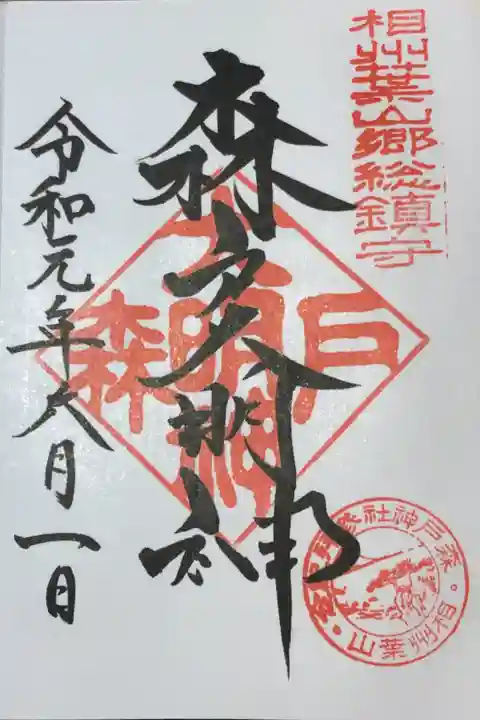 相州葉山郷総鎮守
森戸大明神
森戸大明神
令和元年六月一日
森戸神社
相州葉山